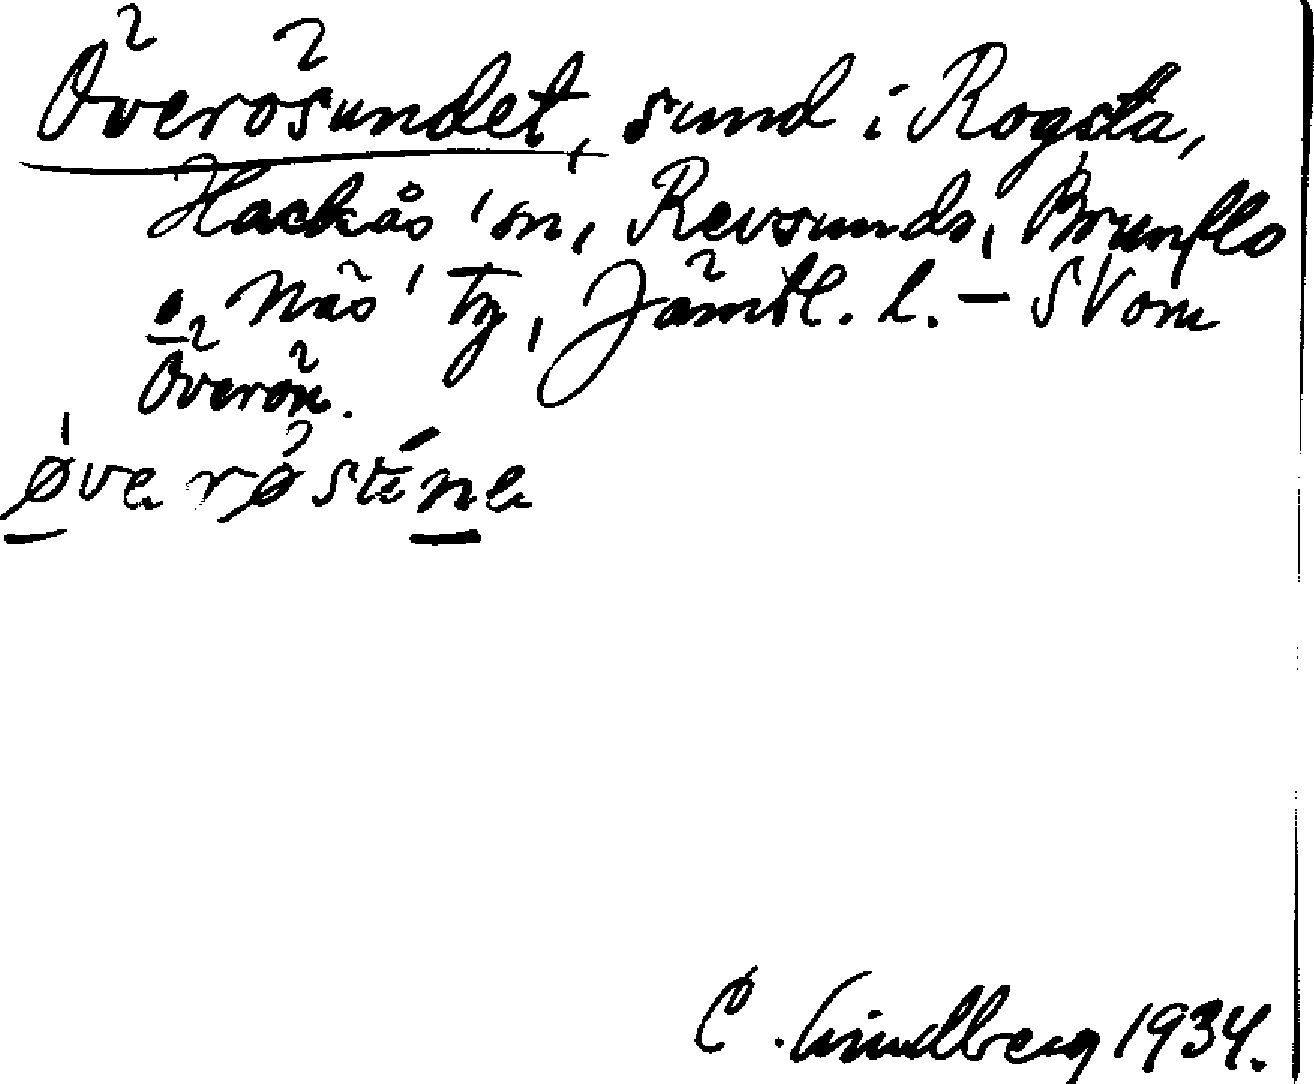 Överösundet, sund i Rogsta,
Hackås sn, Revsunds, Brunflo
o. Näs tg, Jämtl. l. – SV om
Överön.
øve røsténe
C. Lindberg 1934.